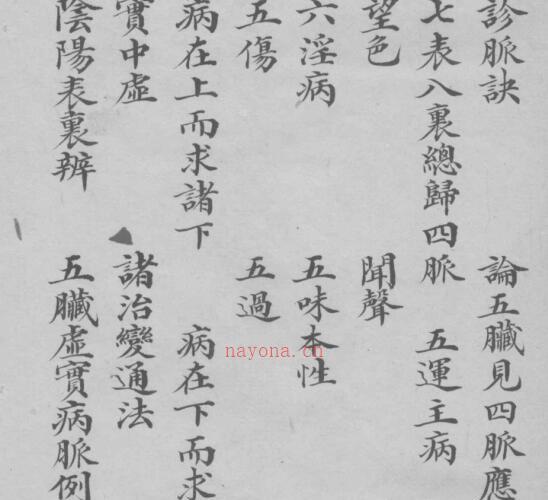 診脈訣　論五臟見四脈應
七表八裏總歸四脈　五運主病
望色　聞聲
六淫病　五味本性
五傷　五過
病在上而求諸下　病在下而求
實中虛　諸治變通法
陰陽表裏辨　五臟虛實病脈例
nayona.cn